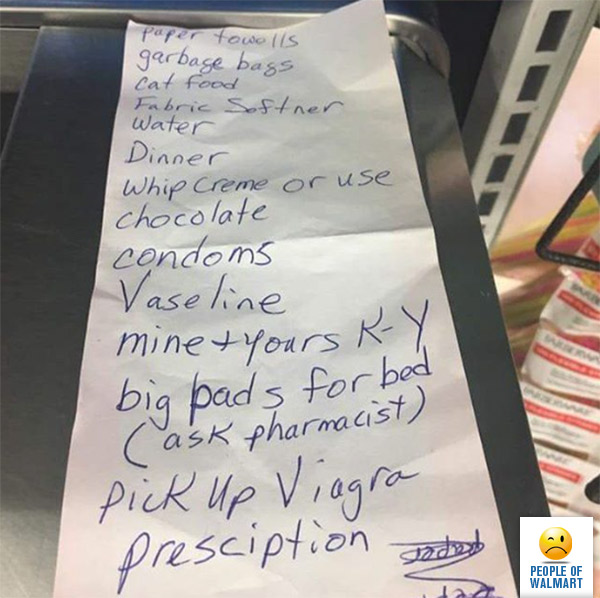 paper towolls
garbage bags
cat food
Fabric Softner
Water
Dinner
Whip Creme or use
chocolate
condoms
Vaseline
mine + yours K-Y
big pads for bed
(ask pharmacist)
pick up Viagra
presciption
PEOPLE OF
WALMART